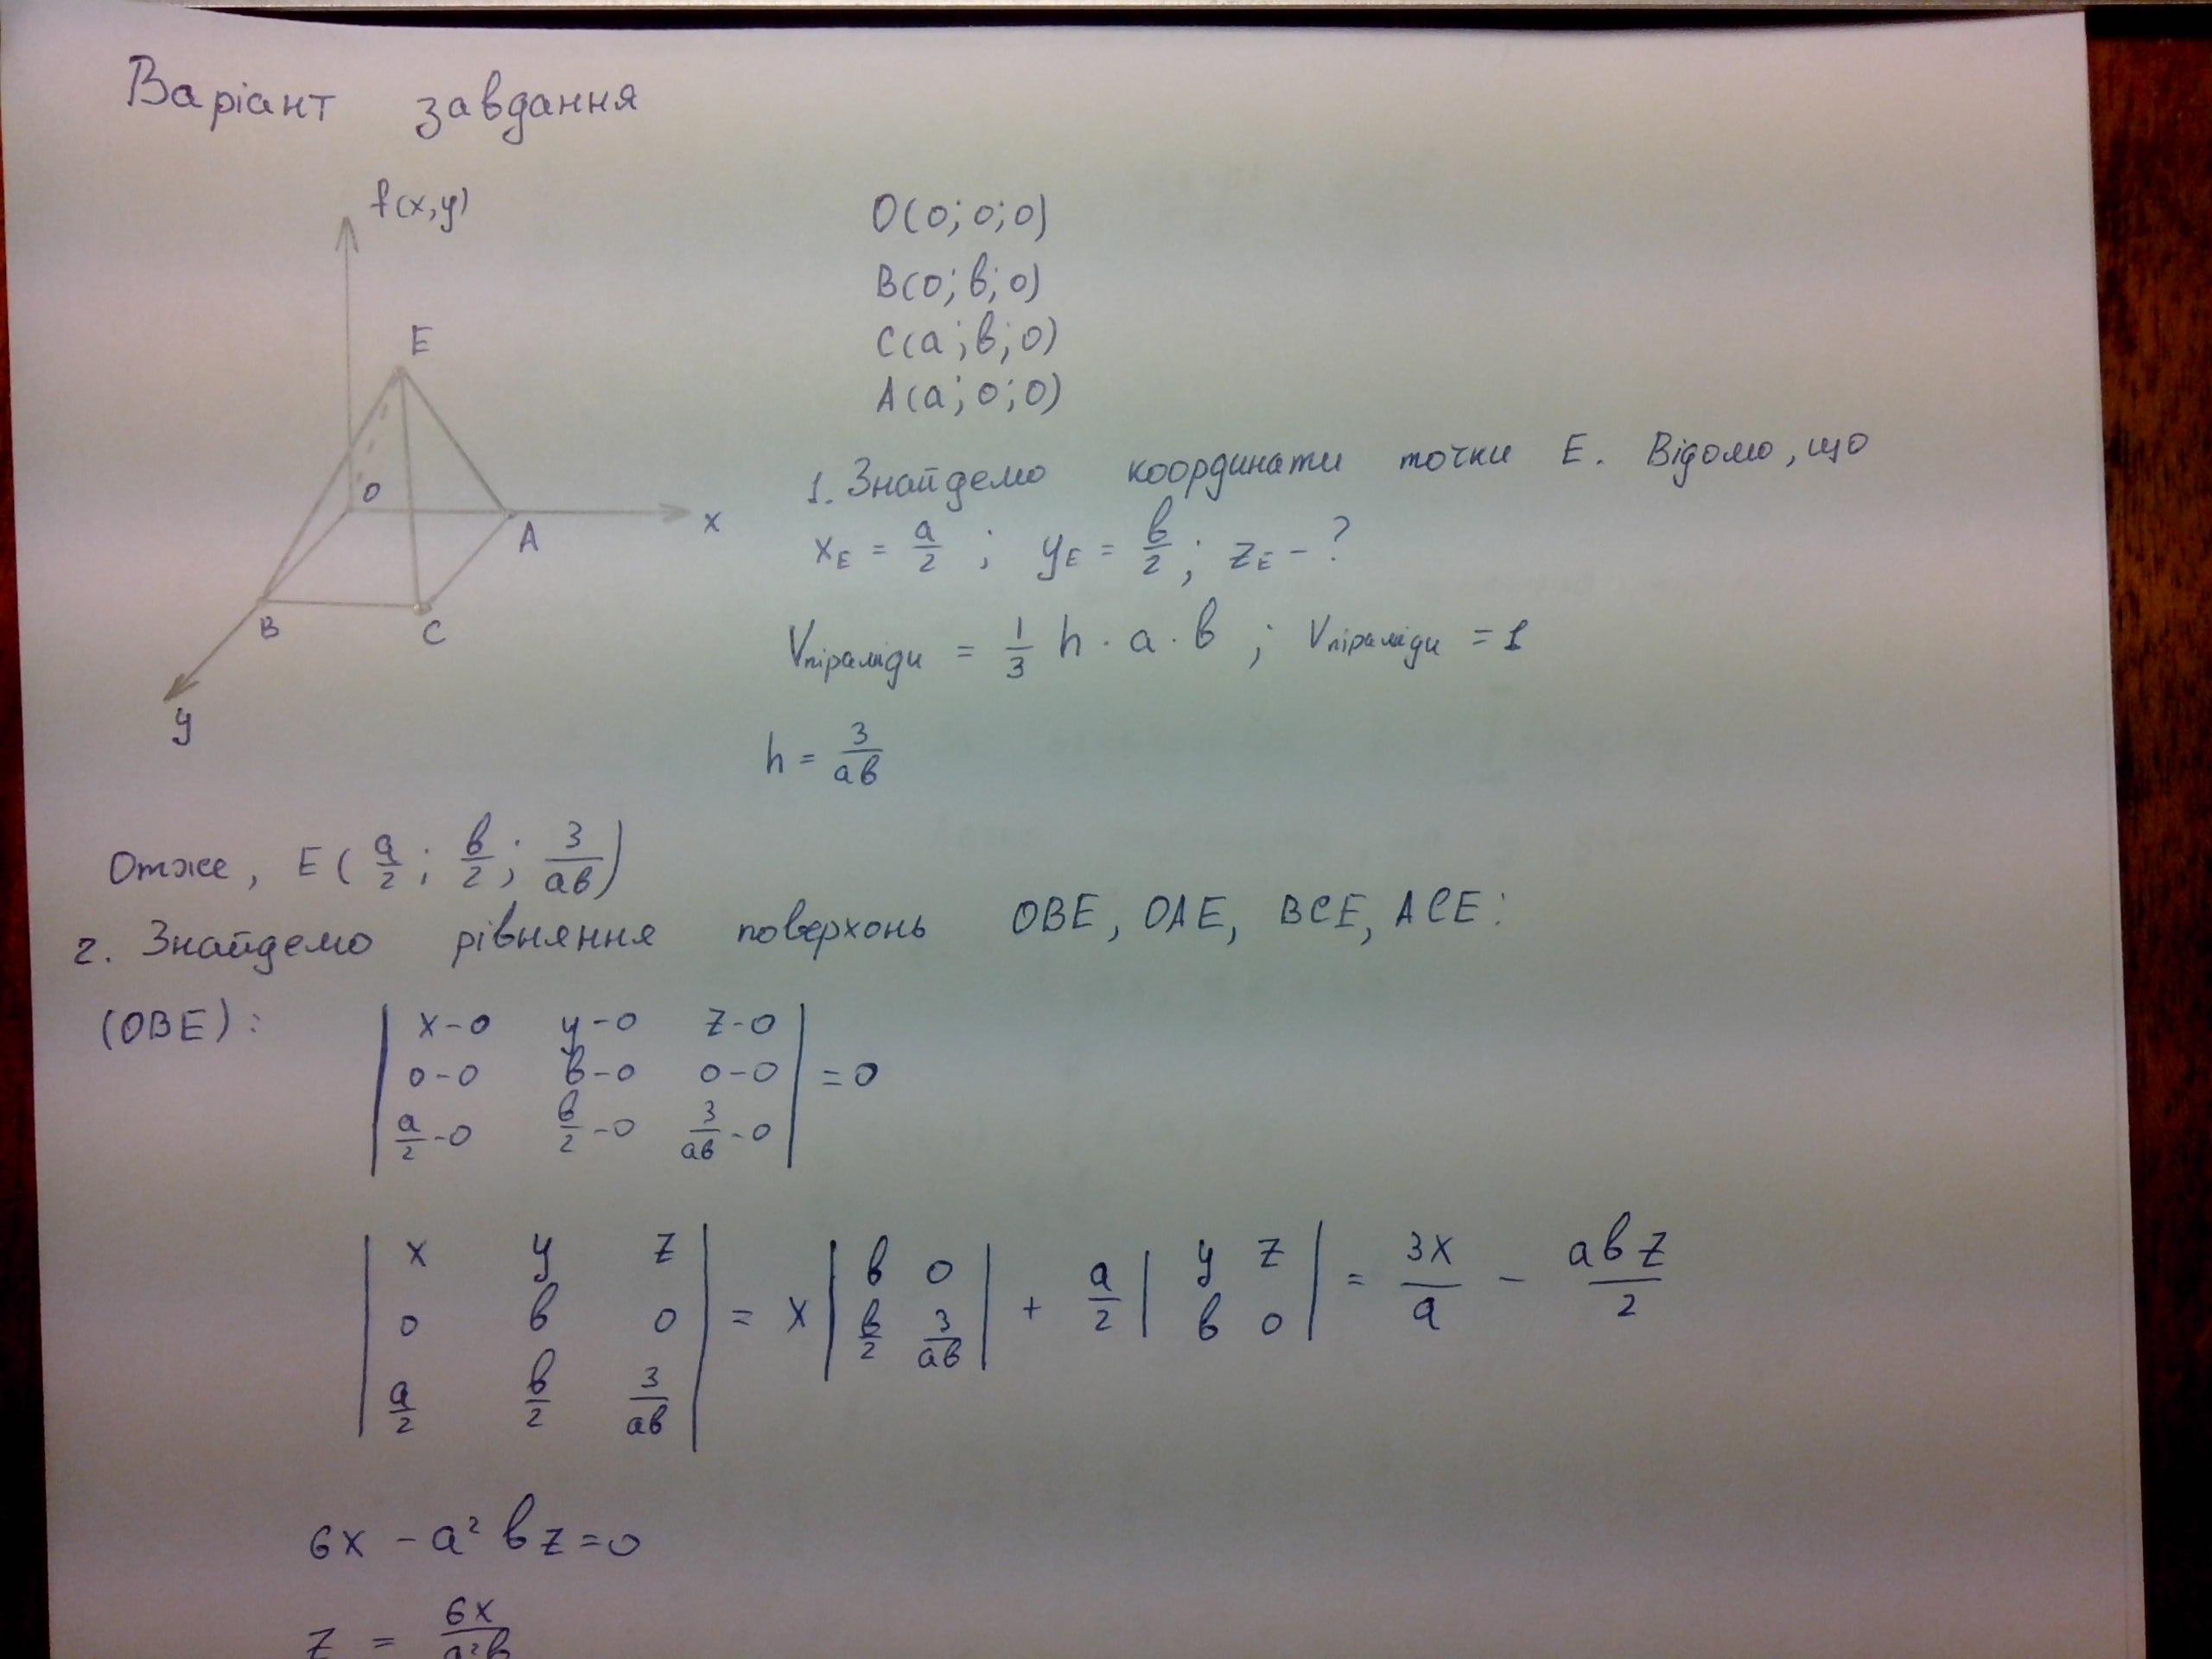 Варіант завдання
f(x,y)
E
O
A
x
B
C
y
O(0; 0; 0)
B(0; в; 0)
C(a; в; 0)
A(a; 0; 0)
1. Знайдемо координати точки E. Відомо, що
x_E = a/2 ; y_E = в/2 ; z_E - ?
V піраміди = 1/3 h · a · в ; V піраміди = 1
h = 3/aв
Отже, E( a/2 ; в/2 ; 3/aв )
2. Знайдемо рівняння поверхонь OBE, OAE, BCE, ACE:
(OBE): | x-0 y-0 z-0 |
| 0-0 в-0 0-0 | = 0
| a/2-0 в/2-0 3/aв-0 |
| x y z |
| 0 в 0 | = x | в 0 ; в/2 3/aв | + a/2 | y z ; в 0 | = 3x/a - aвz/2
| a/2 в/2 3/aв |
6x - a² в z = 0
z = 6x/a²в